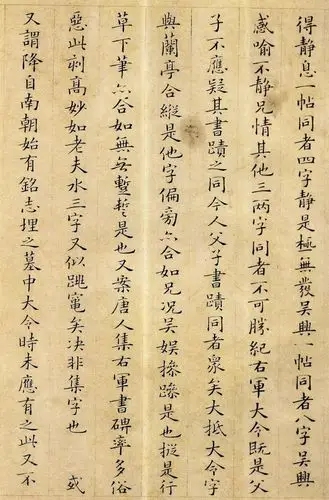 得静息一帖同者四字静是極無發吴興一帖同者八字吴興
感喻不静兄情其他三两字同者不可勝紀右軍大令既是父
子不應疑其書蹟之同今人父子書蹟同者衆矣大抵大令字
與蘭亭合縱是他字偏旁亦合如兄况吴娱摻躁是也摐是行
草下筆亦合如無無暫暫是也又案唐人集右軍書碑率多俗
惡此刻高妙如老夫水三字又似跳竄矣決非集字也 或
又謂降自南朝始有銘志埋之墓中大令時未應有之此又不